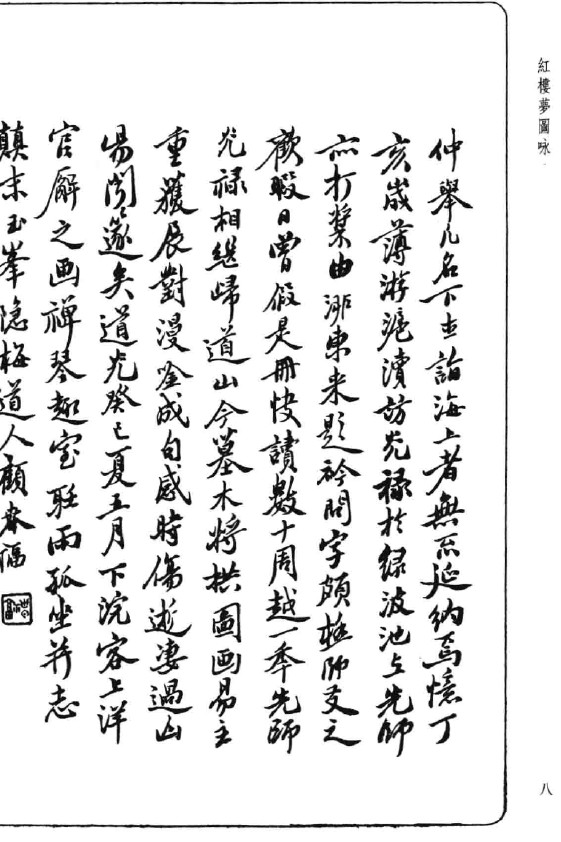 紅樓夢圖咏
仲舉凡名下士詣海上者無不延納焉憶丁
亥歲薄游滬瀆訪光祿於綠波池上先師
亦打槳由浙東来題襟問字頗極師友之
歡暇日曾假是冊快讀數十周越一秊先師
光祿相継歸道山今墓木將拱圖画易主
重獲展對漫唫成句感時傷逝淒過山
陽聞篴矣道光癸巳夏五月下浣客上洋
官廨之画禪琴趣室聽雨孤坐并志
顛末玉峯隐梅道人顧春福
八